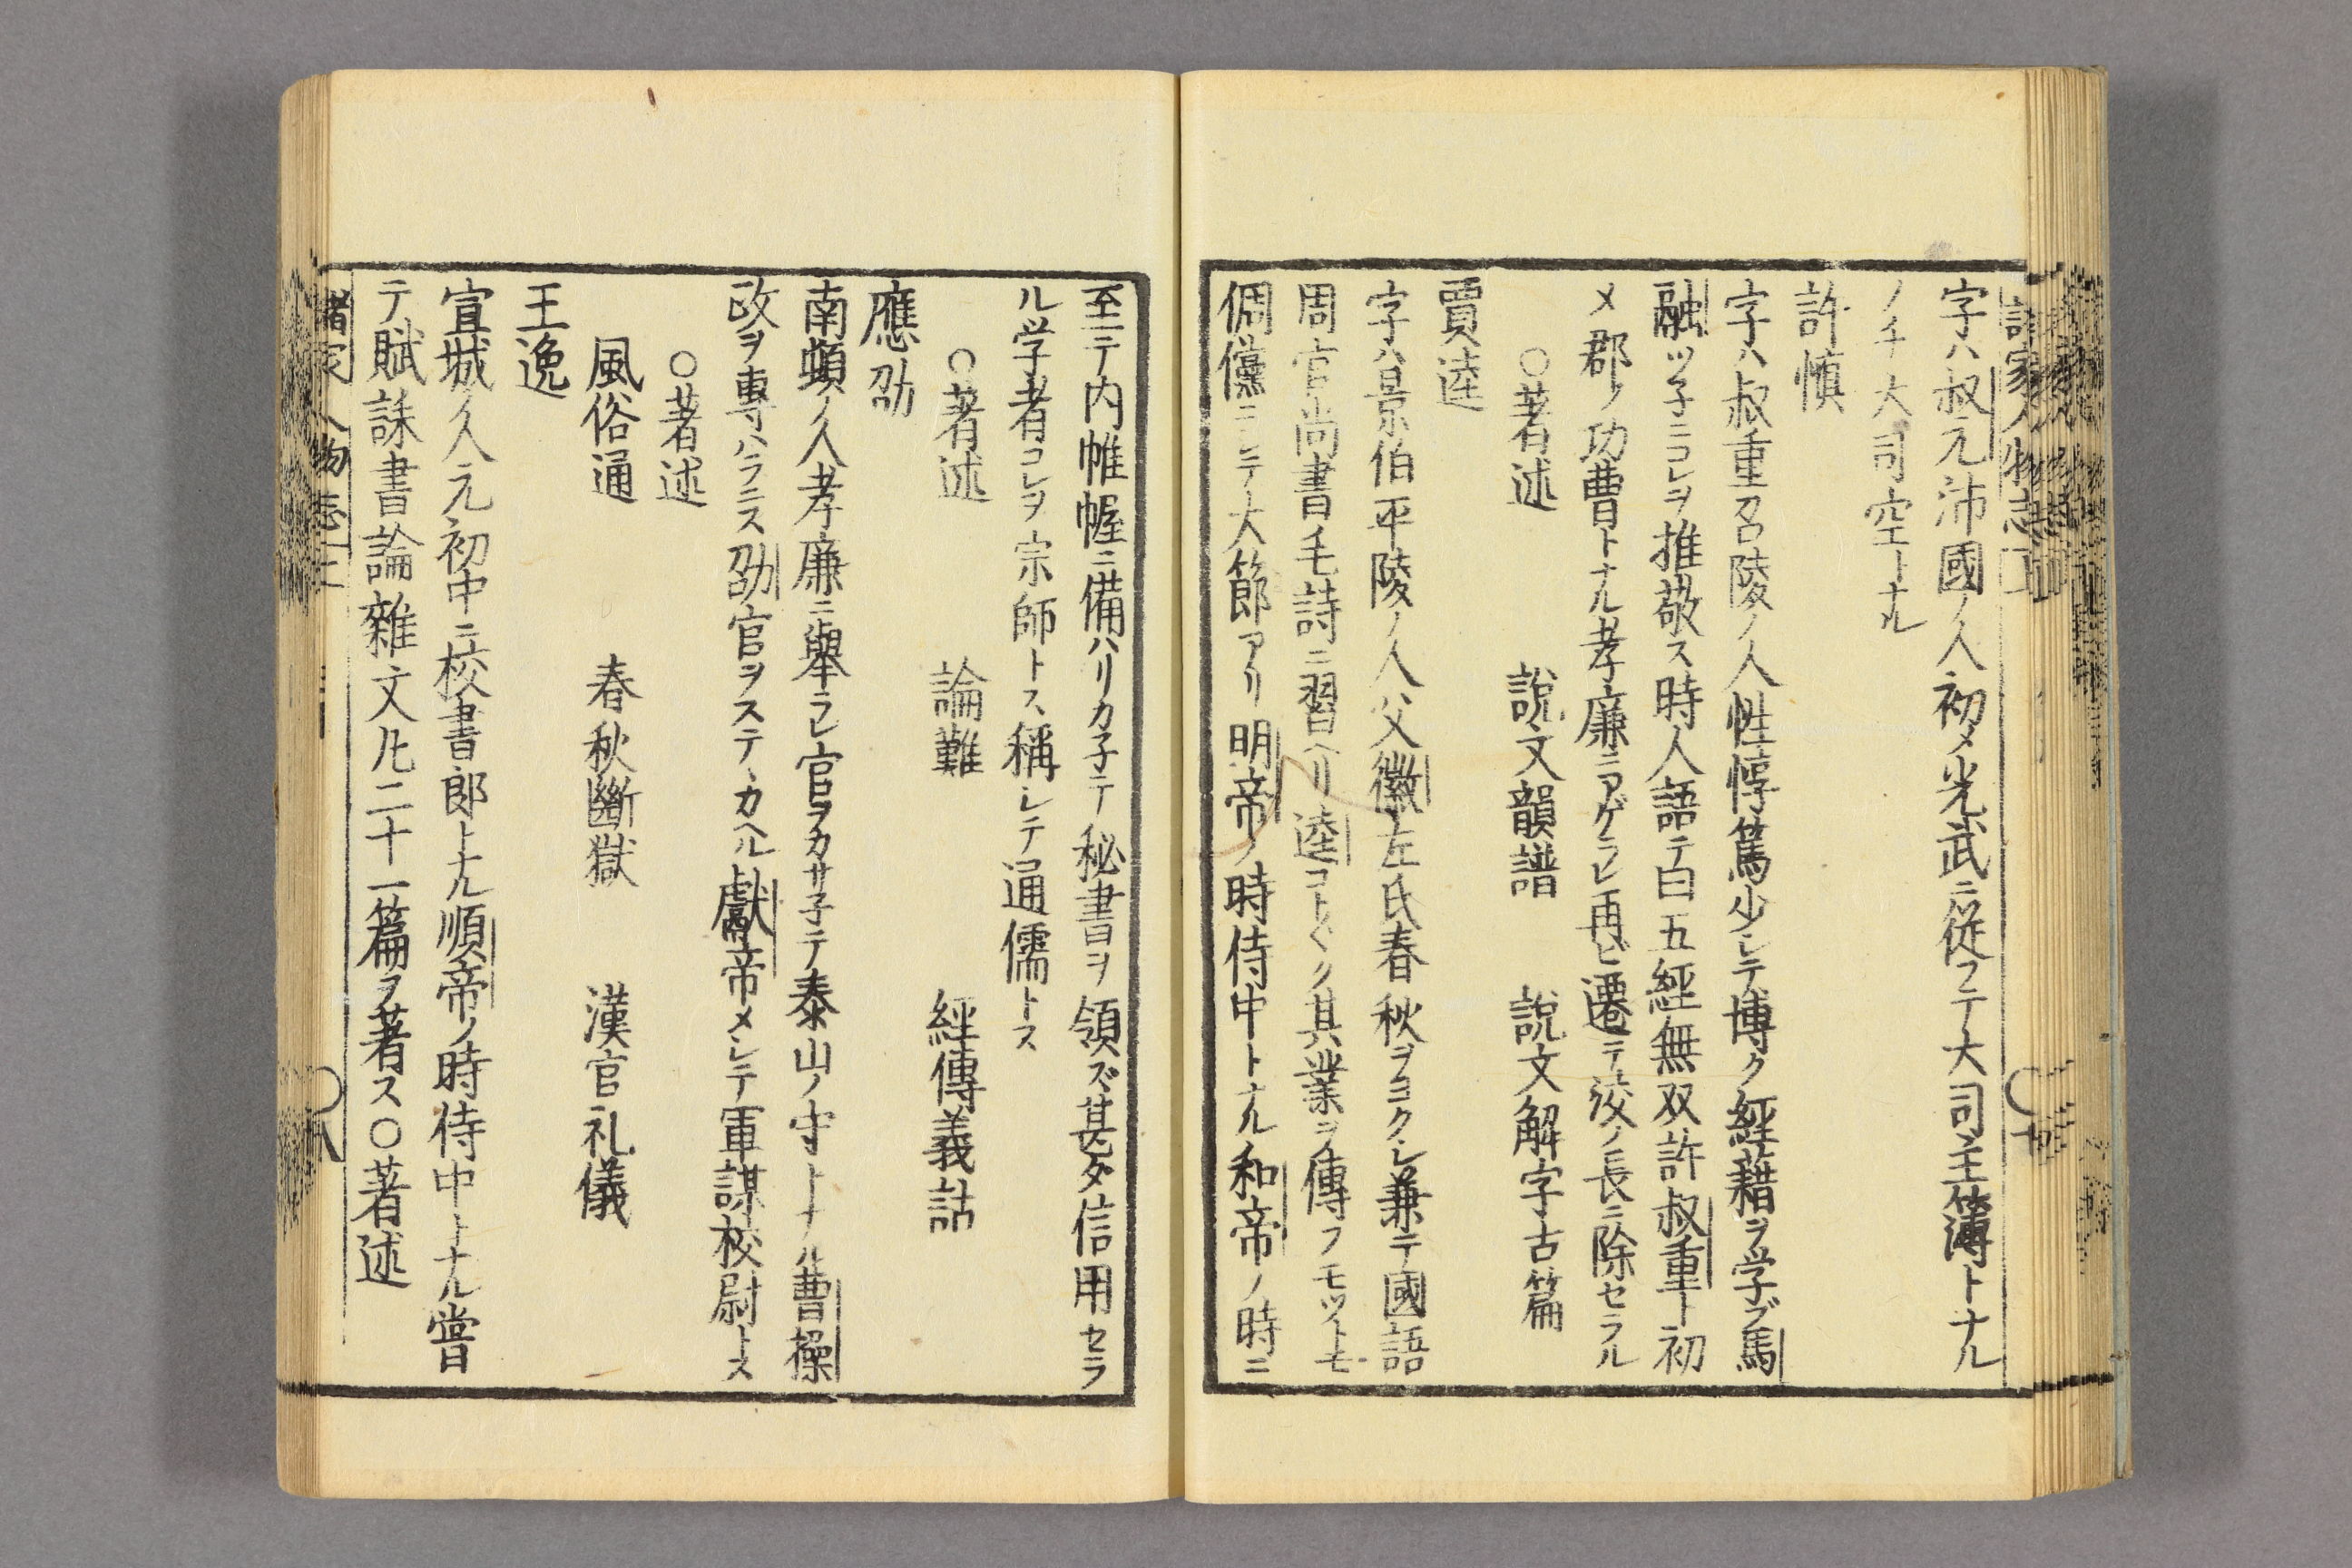 諸家人物志 上
字ハ叔元沛國ノ人初メ光武ニ從フテ大司主簿トナル
ノチ大司空トナル
許慎
字ハ叔重召陵ノ人性惇篤少シテ博ク經藉ヲ学ブ馬
融ツ子ニコレヲ推敬ス時人語テ曰五經無双許叔重ト初
メ郡ノ功曹トナル孝廉ニアゲラレ再ビ遷テ洨ノ長ニ除セラル
○著述 說文韻譜 說文解字古篇
賈逵
字ハ景伯平陵ノ人父徽左氏春秋ヲヨクシ兼テ國語
周官尚書毛詩ニ習ヘリ逵コト〱ク其業ヲ傳フモツトモ
倜儻ニシテ大節アリ明帝ノ時侍中トナル和帝ノ時ニ
至テ内帷幄ニ備ハリカ子テ秘書ヲ領ズ甚タ信用セラ
ル学者コレヲ宗師トス稱シテ通儒トス
○著述 論難 經傳義詁
應劭
南頓ノ人孝廉ニ舉ラレ官ヲカサ子テ泰山ノ守トナル曹操
政ヲ專ハラニス劭官ヲステヽカヘル獻帝メシテ軍謀校尉トス
○著述
風俗通 春秋斷獄 漢官礼儀
王逸
宣城ノ人元初中ニ校書郎トナル順帝ノ時侍中トナル嘗
テ賦誄書論雜文凡二十一篇ヲ著ス○著述
諸家人物志 上